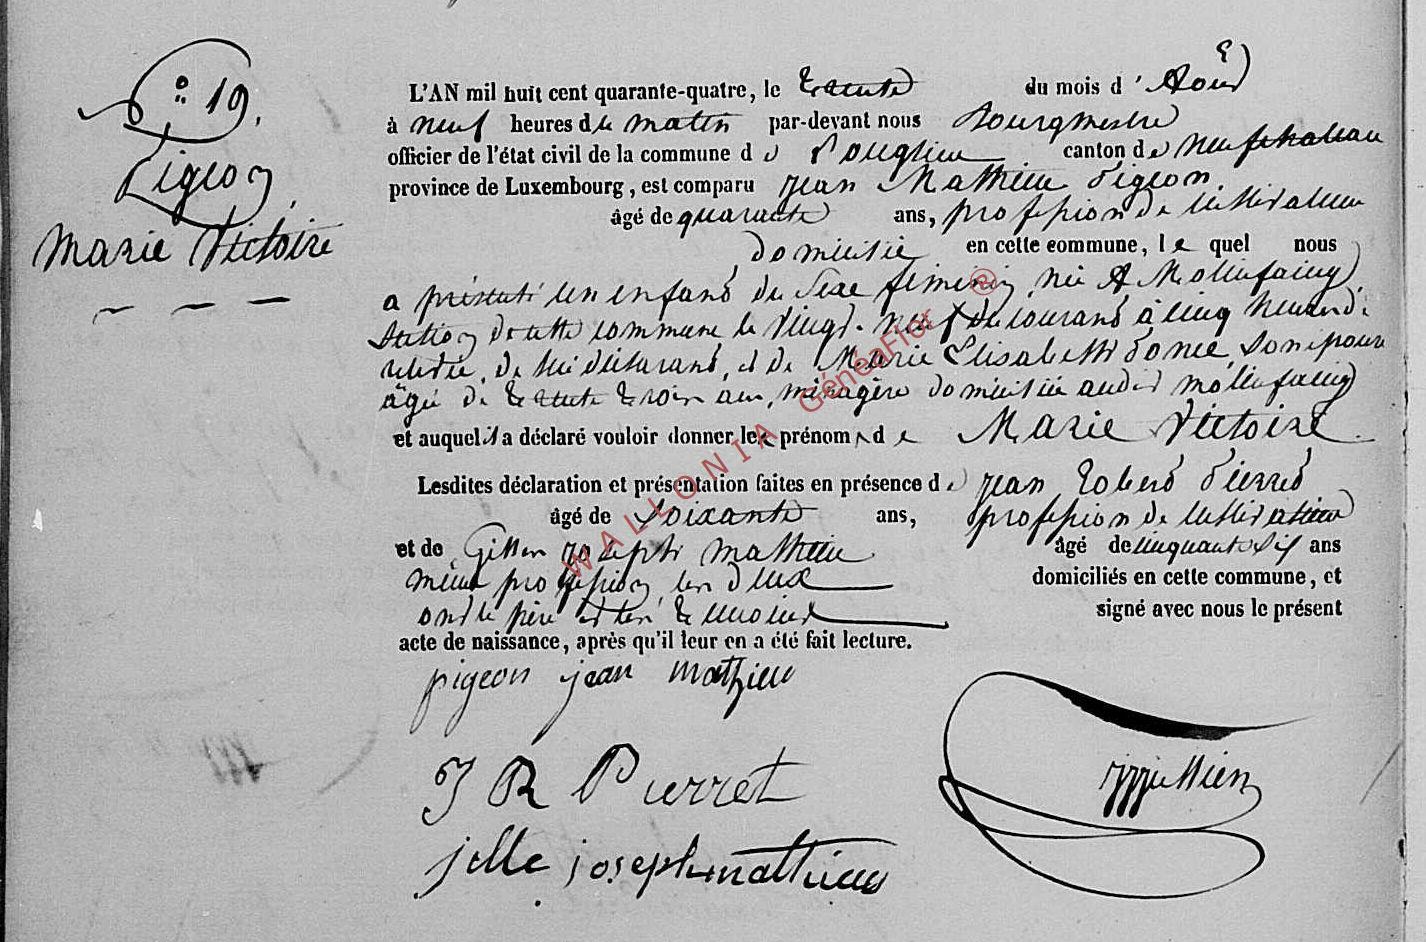 N° 19.
Pigeon
Marie Victoire
L'AN mil huit cent quarante-quatre, le trente du mois d' Août
à neuf heures du matin par-devant nous Bourgmestre
officier de l'état civil de la commune de Longlier canton de neufchateau
province de Luxembourg, est comparu jean Mathieu Pigeon
âgé de quarante ans, profession de cultivateur
domicilié en cette commune, lequel nous
a présenté un enfant du Sexe féminin, née A Molinfaing
Section de cette commune le vingt-neuf du courant à cinq heures de
relevée, de lui déclarant, et de Marie Elisabeth son épouse
âgée de trente trois ans, ménagère domiciliée audit molinfaing
et auquel il a déclaré vouloir donner les prénoms de Marie Victoire
Lesdites déclaration et présentation faites en présence de jean Robert Pierret
âgé de Soixante ans, profession de cultivateur
et de joseph mathieu âgé de cinquante Six ans
même profession, les deux domiciliés en cette commune, et
ont le père et les témoins signé avec nous le présent
acte de naissance, après qu'il leur en a été fait lecture.
pigeon jean mathieu
J R Pierret
joseph mathieu
WALLONIA GénéaFlor ®